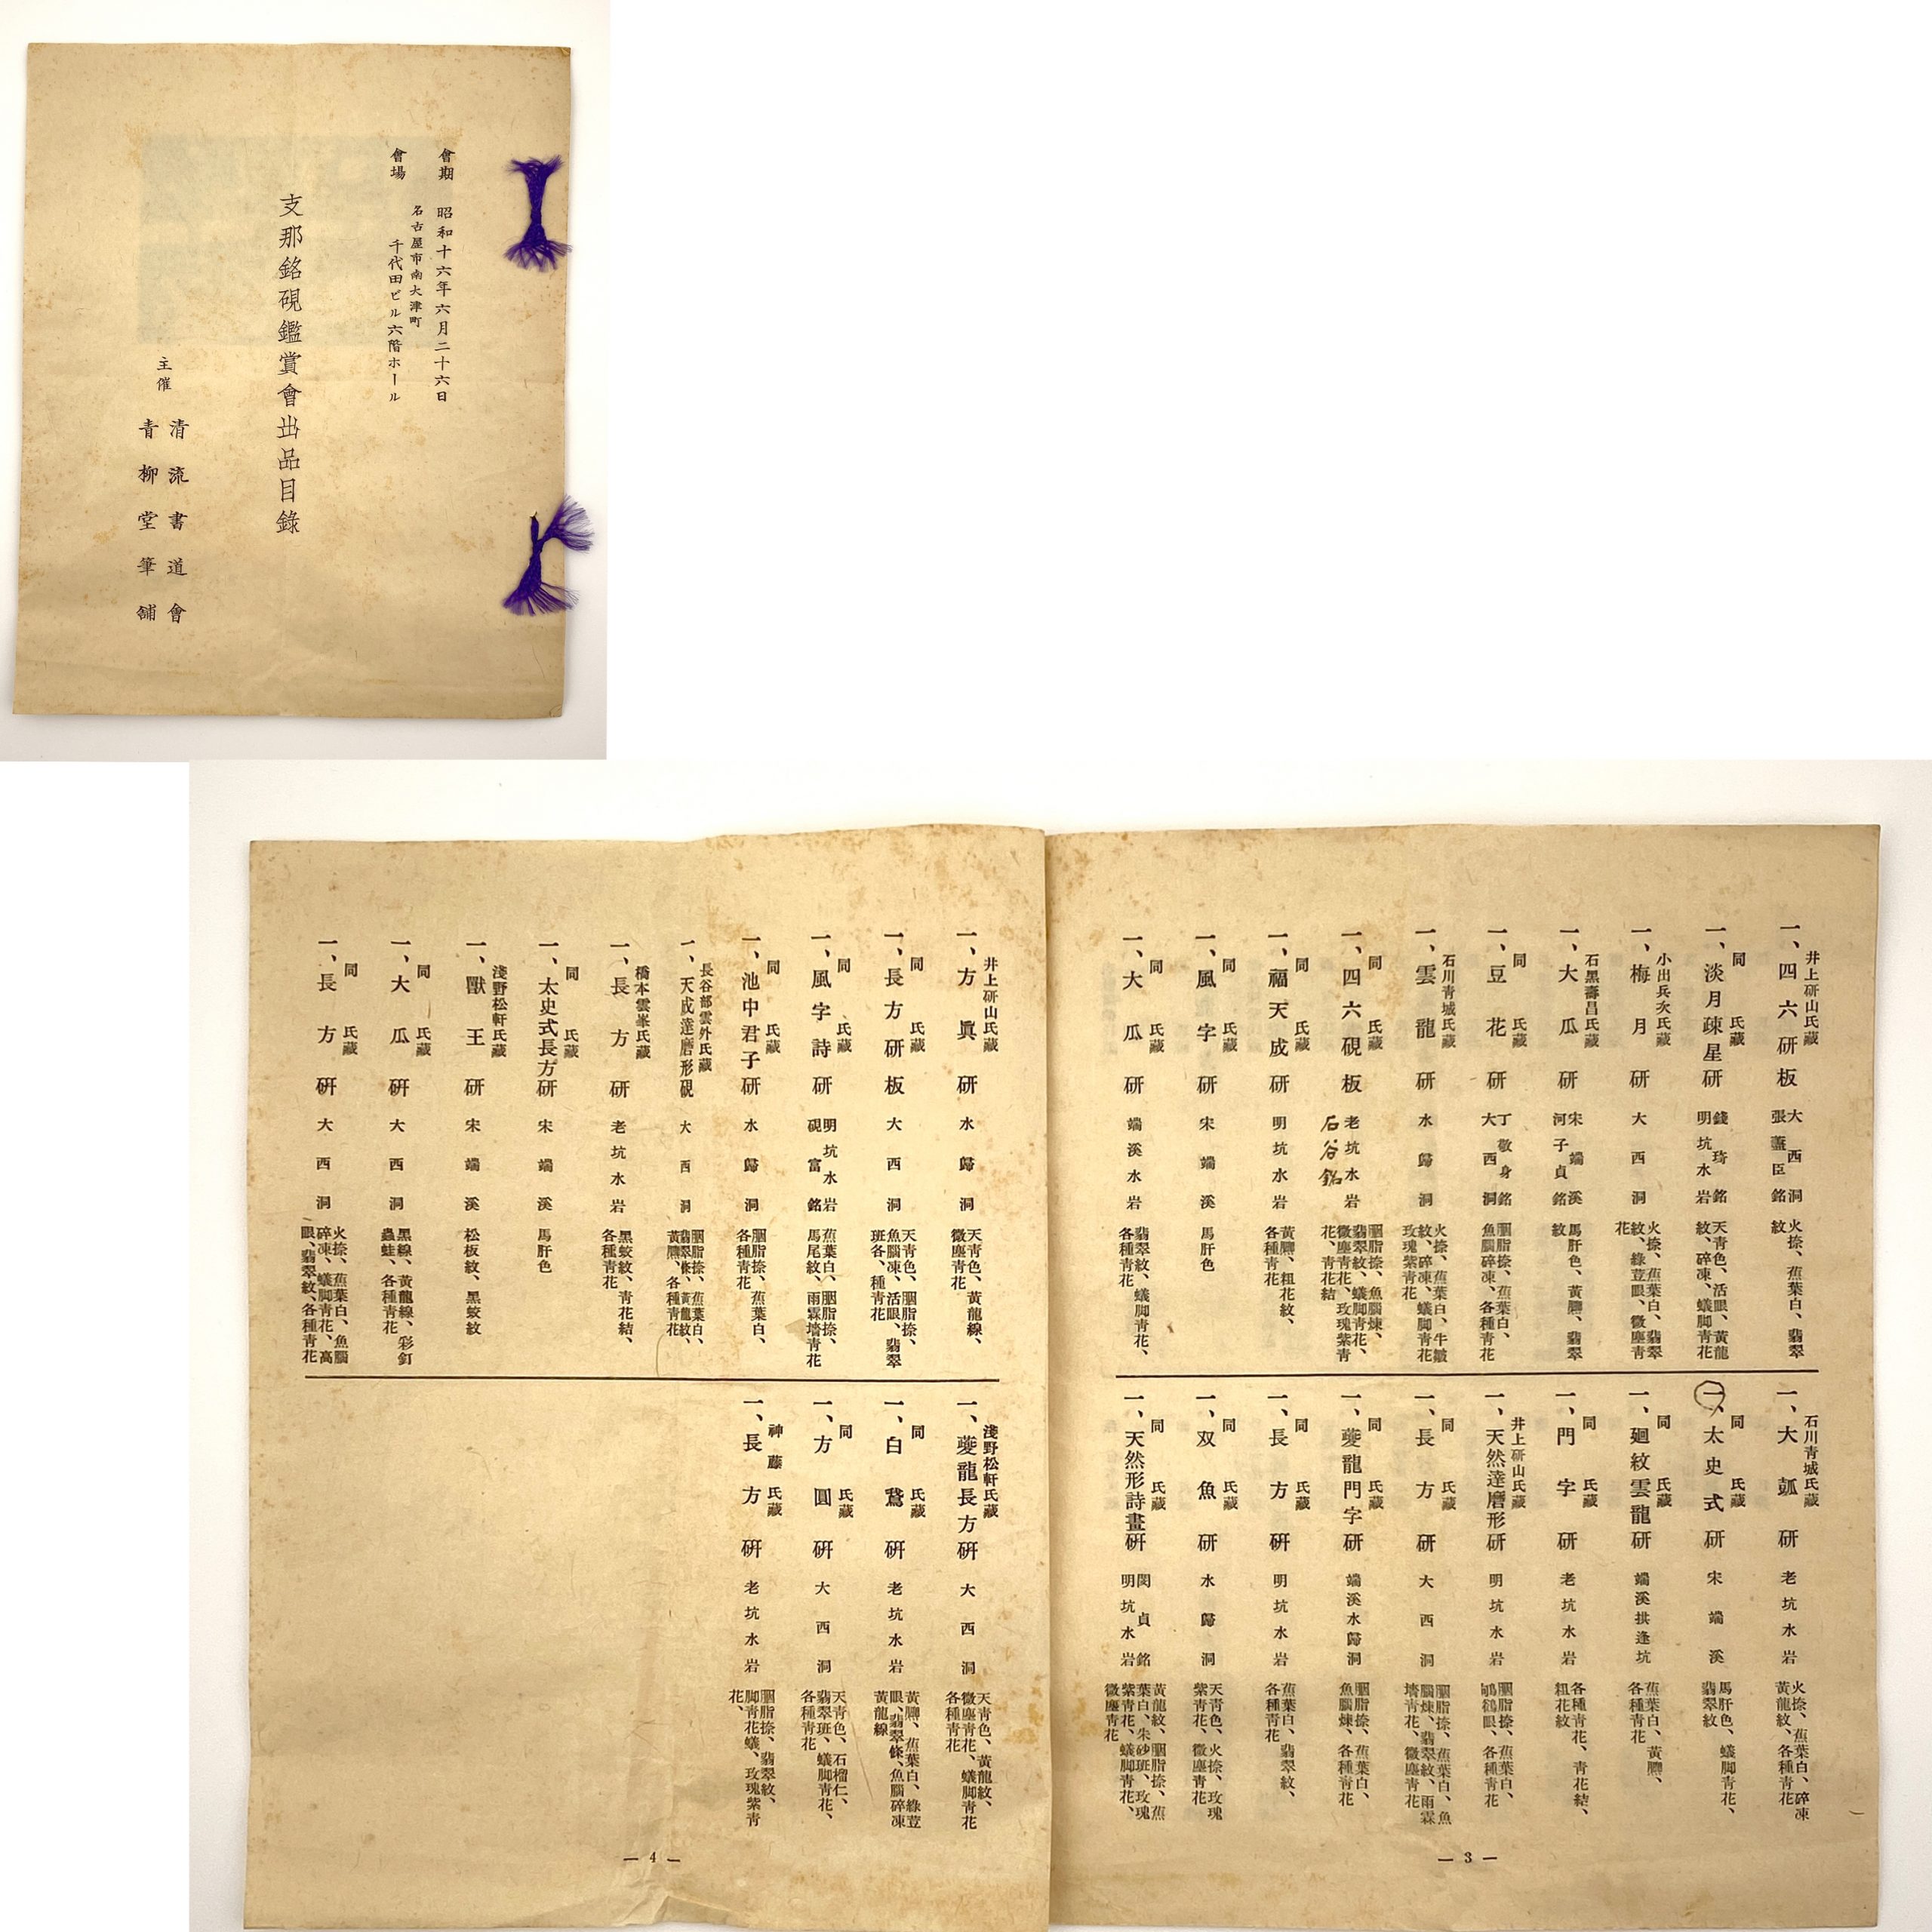 會期　昭和十六年六月二十六日
名古屋市南大津町
會場　千代田ビル六階ホール
支那銘硯鑑賞會出品目錄
主催
清流書道會
青柳堂筆舖
井上研山氏藏
一、四六研板
大西洞
張藎臣銘
火捺、蕉葉白、翡翠
紋
同　氏藏
一、淡月疎星研
錢琦銘
明坑水岩
天青色、活眼、黃龍
紋、碎凍、蟻脚青花
小出兵次氏藏
一、梅月研
大西洞
火捺、蕉葉白、翡翠
紋、綠荳眼、微塵青
花
石黑壽昌氏藏
一、大瓜研
宋端溪
河子貞銘
馬肝色、黃臕、翡翠
紋
同　氏藏
一、豆花研
丁敬身銘
大西洞
胭脂捺、蕉葉白、
魚腦碎凍、各種青花
石川青城氏藏
一、雲龍研
水歸洞
火捺、蕉葉白、牛皺
紋、碎凍、蟻脚青花
玫瑰紫青花
同　氏藏
一、四六硯板
老坑水岩
石谷銘
胭脂捺、魚腦煉、
翡翠紋、蟻脚青花、
微塵青花、玫瑰紫青
花、青花結
同　氏藏
一、福天成研
明坑水岩
黃臕、粗花紋、
各種青花
同　氏藏
一、風字研
宋端溪
馬肝色
同　氏藏
一、大瓜研
端溪水岩
翡翠紋、蟻脚青花、
各種青花
石川青城氏藏
一、大瓠研
老坑水岩
火捺、蕉葉白、碎凍
黃龍紋、各種青花
同　氏藏
一、太史式研
宋端溪
馬肝色、蟻脚青花、
翡翠紋
同　氏藏
一、廻紋雲龍研
端溪拱逢坑
蕉葉白、黃臕、
各種青花
同　氏藏
一、門字研
老坑水岩
各種青花、青花結、
粗花紋
井上研山氏藏
一、天然達磨形研
明坑水岩
胭脂捺、蕉葉白、
鴝鵒眼、各種青花
同　氏藏
一、長方研
大西洞
胭脂捺、蕉葉白、魚
腦煉、翡翠紋、雨霖
墻青花、微塵青花
同　氏藏
一、夔龍門字研
端溪水歸洞
胭脂捺、蕉葉白、
魚腦煉、各種青花
同　氏藏
一、長方硏
明坑水岩
蕉葉白、翡翠紋、
各種青花
同　氏藏
一、双魚研
水歸洞
天青色、火捺、玫瑰
紫青花、微塵青花
同　氏藏
一、天然形詩畫硏
閔貞銘
明坑水岩
黃龍紋、胭脂捺、蕉
葉白、朱砂班、玫瑰
紫青花、蟻脚青花、
微塵青花
— 3 —
井上研山氏藏
一、方眞研
水歸洞
天青色、黃龍線、
微塵青花
同　氏藏
一、長方研板
大西洞
天青色、胭脂捺、
魚腦凍、活眼、翡翠
班各、種青花
同　氏藏
一、風字詩研
明坑水岩
硯富銘
蕉葉白、胭脂捺、
馬尾紋、雨霖墻青花
同　氏藏
一、池中君子研
水歸洞
胭脂捺、蕉葉白、
各種青花
長谷部雲外氏藏
一、天成達磨形硯
大西洞
胭脂捺、蕉葉白、
翡翠條、黃龍紋、
黃臕、各種青花
橋本雲峯氏藏
一、長方研
老坑水岩
黑蛟紋、青花結、
各種青花
同　氏藏
一、太史式長方研
宋端溪
馬肝色
淺野松軒氏藏
一、獸王研
宋端溪
松板紋、黑蛟紋
同　氏藏
一、大瓜硏
大西洞
黑線、黃龍線、彩釘
蟲蛀、各種青花
同　氏藏
一、長方硏
大西洞
火捺、蕉葉白、魚腦
碎凍、蟻脚青花、高
眼、翡翠紋、各種青花
淺野松軒氏藏
一、夔龍長方硏
大西洞
天青色、黃龍紋、
微塵青花、蟻脚青花
各種青花
同　氏藏
一、白鵞硏
老坑水岩
黃臕、蕉葉白、綠荳
眼、翡翠條、魚腦碎凍
黃龍線
同　氏藏
一、方圓硏
大西洞
天青色、石榴仁、
翡翠班、蟻脚青花、
各種青花
神藤氏藏
一、長方硏
老坑水岩
胭脂捺、翡翠紋、
脚青花蟻、玫瑰紫青
花、
— 4 —